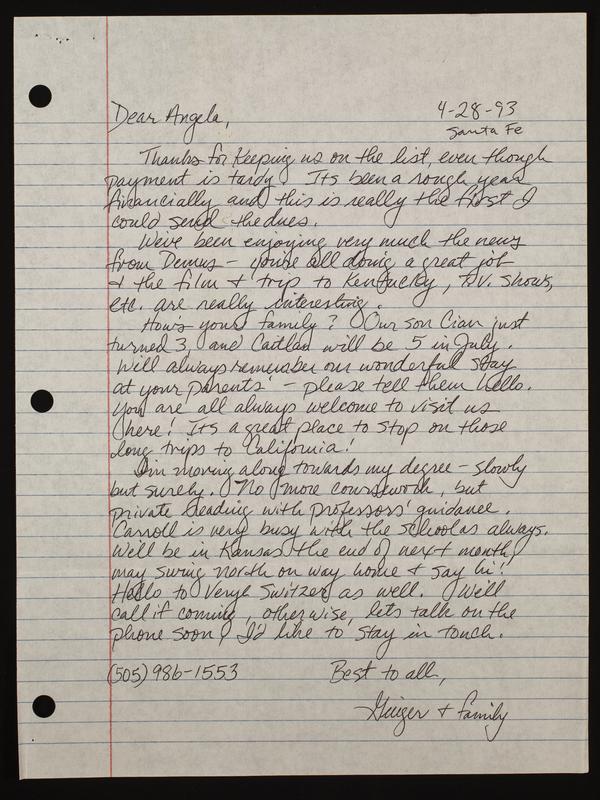 4-28-93
Santa Fe
Dear Angela,
Thanks for keeping us on the list, even though
payment is tardy. Its been a rough year
financially and this is really the first I
could send the dues.
We've been enjoying very much the news
from Demus – you're all doing a great job
& the film & trip to Kentucky, T.V. shows,
etc. are really interesting.
How's your family? Our son Cian just
turned 3, and Caitlan will be 5 in July.
Will always remember our wonderful stay
at your parents' – please tell them hello.
You are all always welcome to visit us
here! Its a great place to stop on those
long trips to California!
I'm moving along towards my degree – slowly
but surely. No more coursework, but
private reading with professors' guidance.
Carroll is very busy with the school as always.
We'll be in Kansas the end of next month,
may swing north on way home & say hi!
Hello to Veryl Switzer as well. We'll
call if coming, otherwise, lets talk on the
phone soon! I'd like to stay in touch.
(505) 986-1553
Best to all,
& family